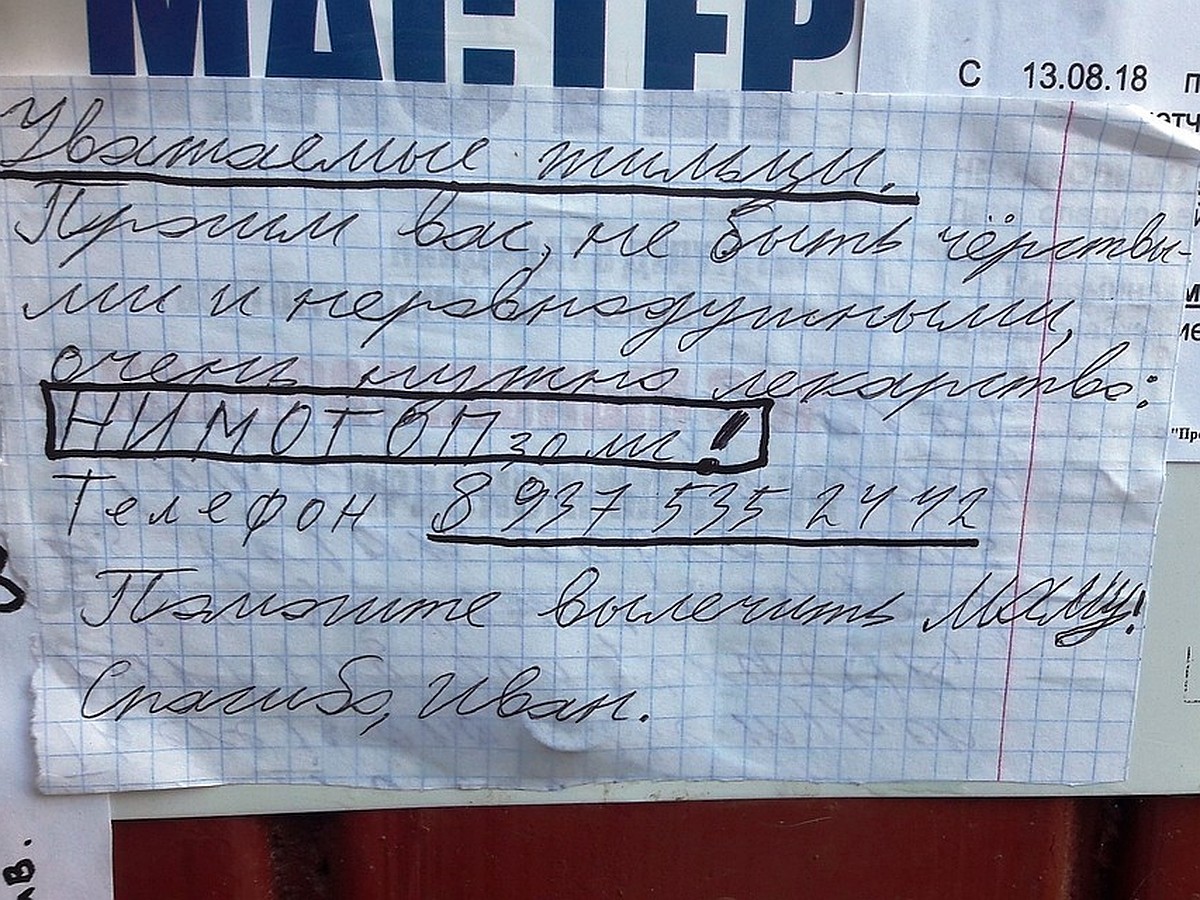 МАСТЕР
С 13.08.18 п
Уважаемые жильцы.
Просим вас, не быть чёрствы-
ми и неравнодушными,
очень нужно лекарство:
НИМОТОП 30 мг!
Телефон 8 937 535 24 42
Помогите вылечить маму!
Спасибо, Иван.